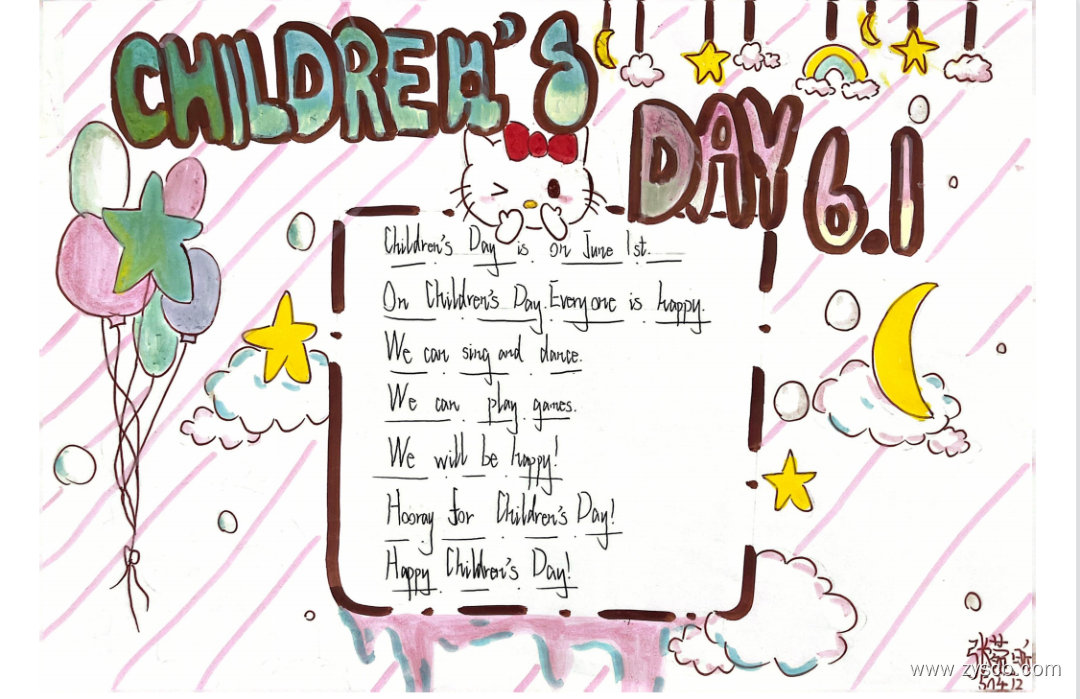 CHILDREN'S
DAY 6.1
Children's Day is on June 1st.
On Children's Day. Everyone is happy.
We can sing and dance.
We can play games.
We will be happy!
Hooray for Children's Day!
Happy Children's Day!